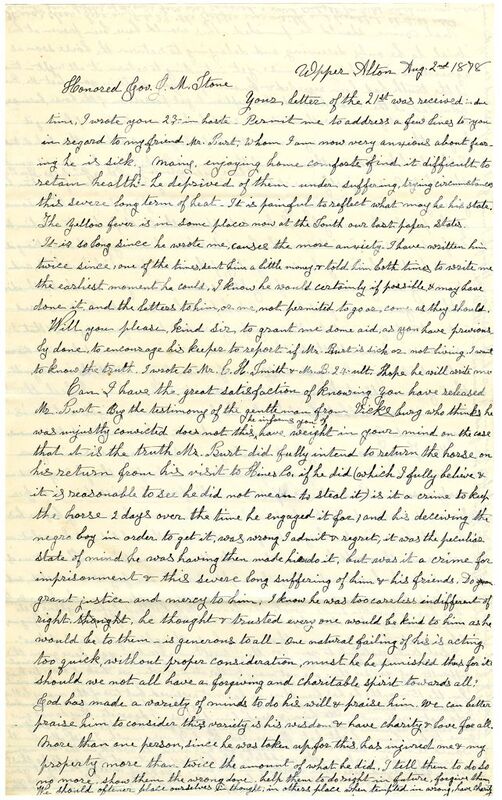 Upper Alton Aug. 2nd 1878
Honored Gov. J. M. Stone
Your letter of the 21st was received in due
time, I wrote you 23 in haste. Permit me to address a few lines to you
in regard to my friend Mr. Burt, whom I am now very anxious about fear-
ing he is sick. Many, enjoying home comforts find it difficult to
retain health. he deprived of them - under suffering, trying circumstances
this severe long term of heat. It is painful to reflect what may be his state.
The Yellow fever is in some places now at the South our last papers state.
It is so long since he wrote me, causes the more anxiety. I have written him
twice since, one of the times, sent him a little money, & told him both times to write me
the earliest moment he could, I know he would certainly if possible, & may have
done it, and the letters to him, or me, not permited to go or come, as they should.
Will you please, kind sir, to grant me some aid, as you have previous
ly done, to encourage his keeper to report if Mr. Burt is sick or not living, I want
to know the truth. I wrote to Mr. C. H. Smith & Mr. B. 29 ult. I hope he will write me
Can I have the great satisfaction of knowing you have released
Mr. Burt. By the testimony of the gentleman from Vicksburg who thinks he
was unjustly convicted does not this, he informs you of have weight in your mind on the case
that it is the truth Mr. Burt did fully intend to return the horse on
his return from his visit to Hines Co. if he did (which I fully believe &
it is reasonable to see he did not mean to steal it) is it a crime to keep
the horse 2 days over the time he engaged it for, and his deceiving the
negro boy in order to get it, was wrong I admit & regret, it was the peculiar
state of mind he was having then made him do it, but was it a crime for
imprisonment & this severe long suffering of him & his friends. Do you
grant justice and mercy to him. I know he was too careless indifferent of
right thought, he thought & trusted every one would be kind to him as he
would be to them - is generous to all - One natural failing of his is acting
too quick, without proper consideration, must he be punished thus for it
should we not all have a forgiving and charitable spirit towards all?
God has made a variety of minds to do his will & praise him. We can better
praise him to consider this variety is his wisdom & have charity & love for all.
More than one person, since he was taken up for this has injured me & my
property more than twice the amount of what he did, I tell them to do so
no more, show them the wrong done, help them to do right in future, forgive them
We should oftener place ourselves in thought, in others place when tempted in wrong, have charity